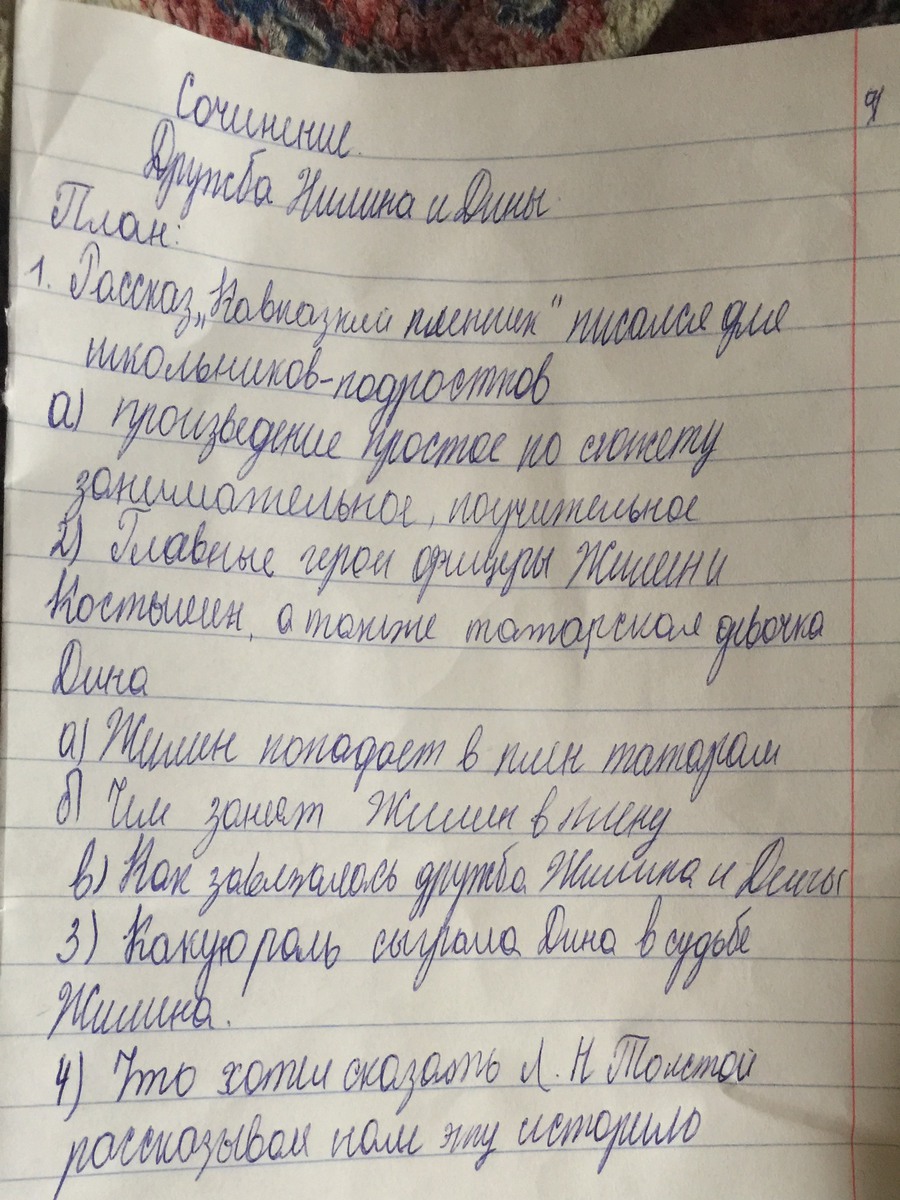 Сочинение.
Дружба Жилина и Дины.
План:
1. Рассказ „Кавказкий пленник" писался для
школьников-подростков
а) произведение простое по сюжету
занимательное, поучительное
2) Главные герои офицеры Жилин и
Костылин, а также татарская девочка
Дина
а) Жилин попадает в плен татарам
б) Чем занят Жилин в плену
в) Как завязалась дружба Жилина и Дины
3) Какую роль сыграла Дина в судьбе
Жилина.
4) Что хотел сказать Л. Н Толстой
рассказывая нам эту историю